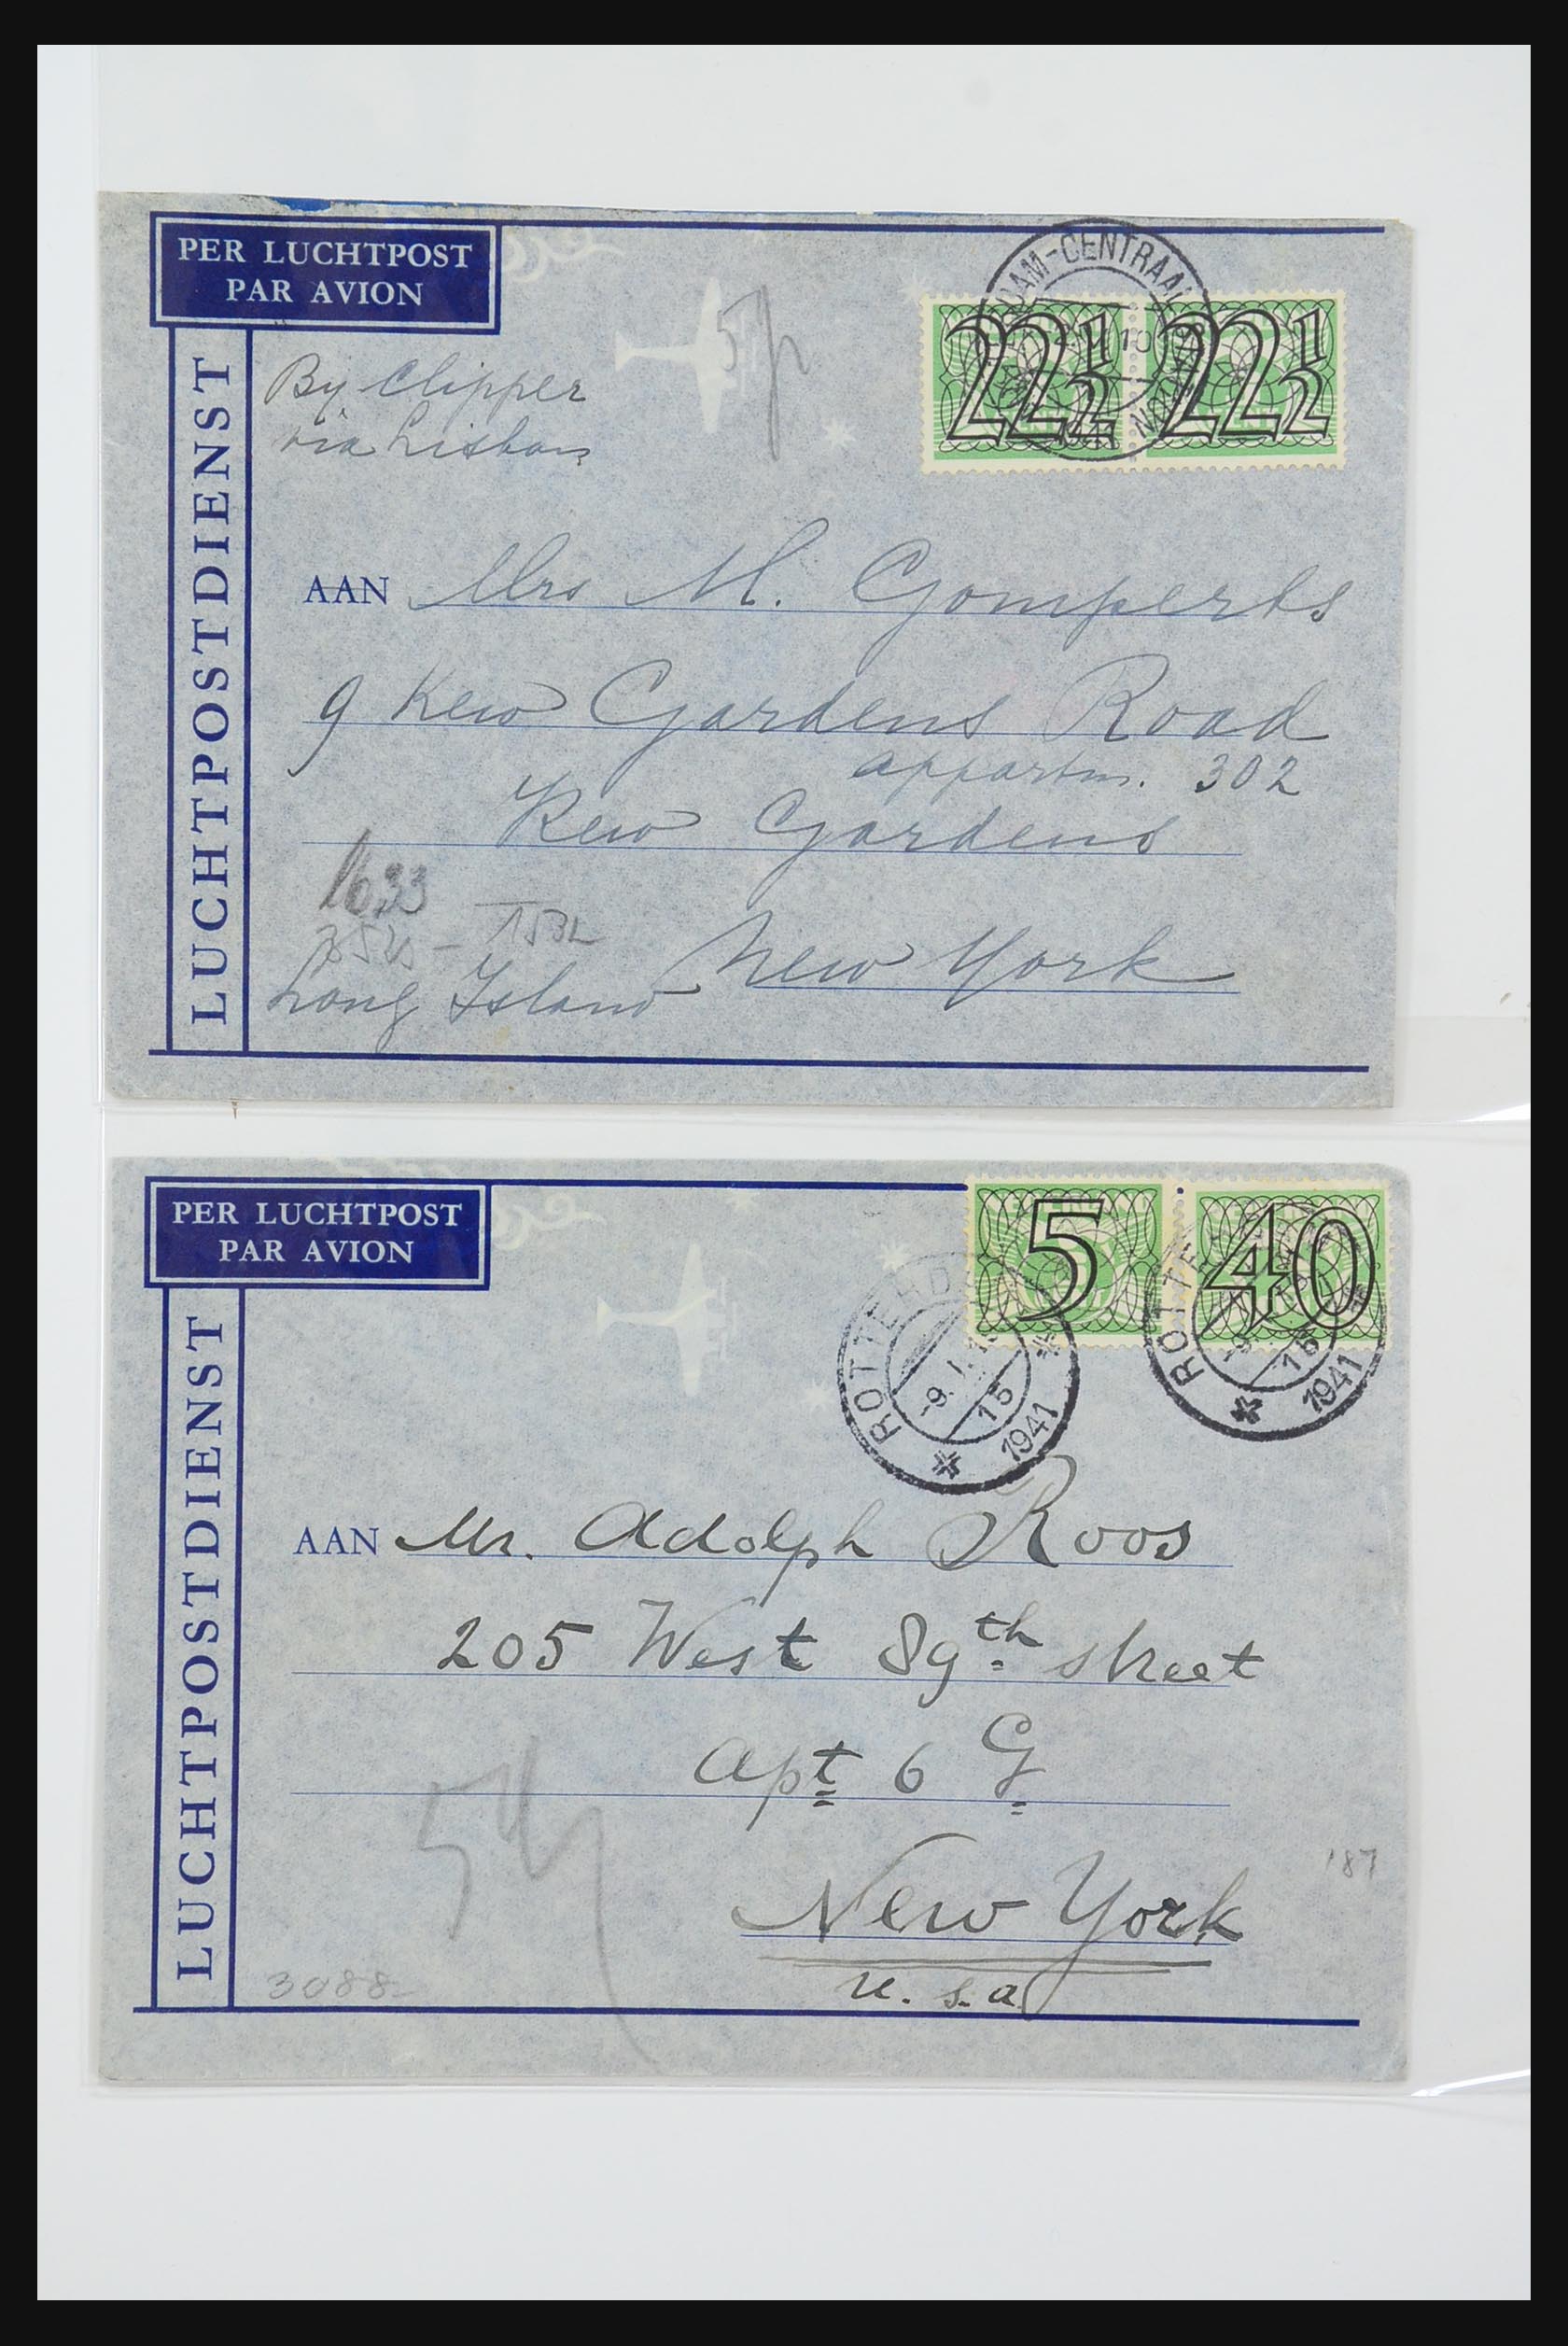 PER LUCHTPOST
PAR AVION
LUCHTPOSTDIENST
By Clipper
via Lisbon
DAM-CENTRAAL
10
22½ 22½
AAN Mrs M. Gomperts
9 Kew Gardens Road
appartm. 302
Kew Gardens
1633
Long Island New York
PER LUCHTPOST
PAR AVION
LUCHTPOSTDIENST
5 40
ROTTERD
-9.I.
15
1941
ROTTE
-9
15
1941
AAN Mr. Adolph Roos
205 West 89th street
Apt 6 G
New York
U.S.A.
187
3088-